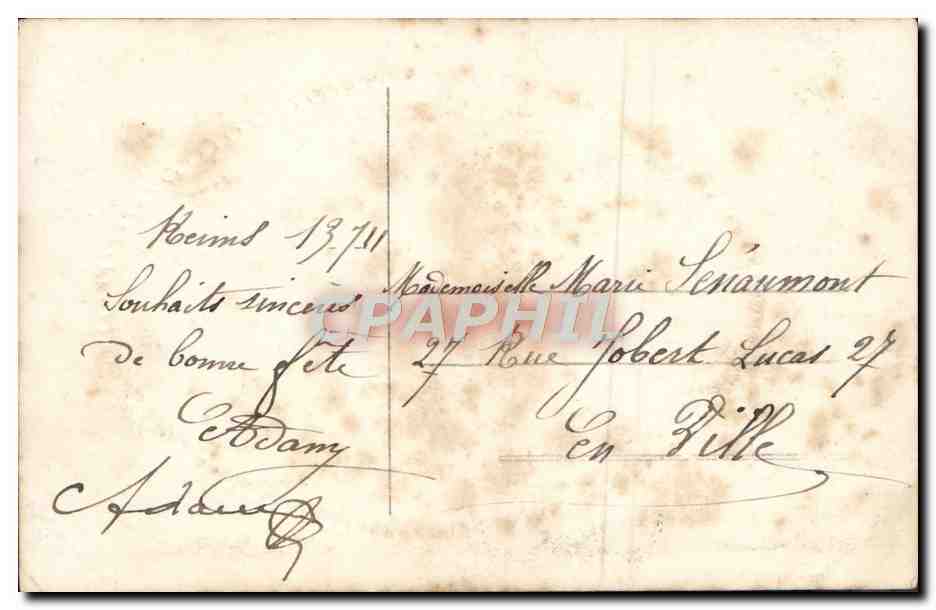 Reims 13-7-11
Souhaits sincères
de bonne fête
Adam
Adam
Mademoiselle Marie
27 Rue Jobert Lucas 27
En Ville
CPAPHIL